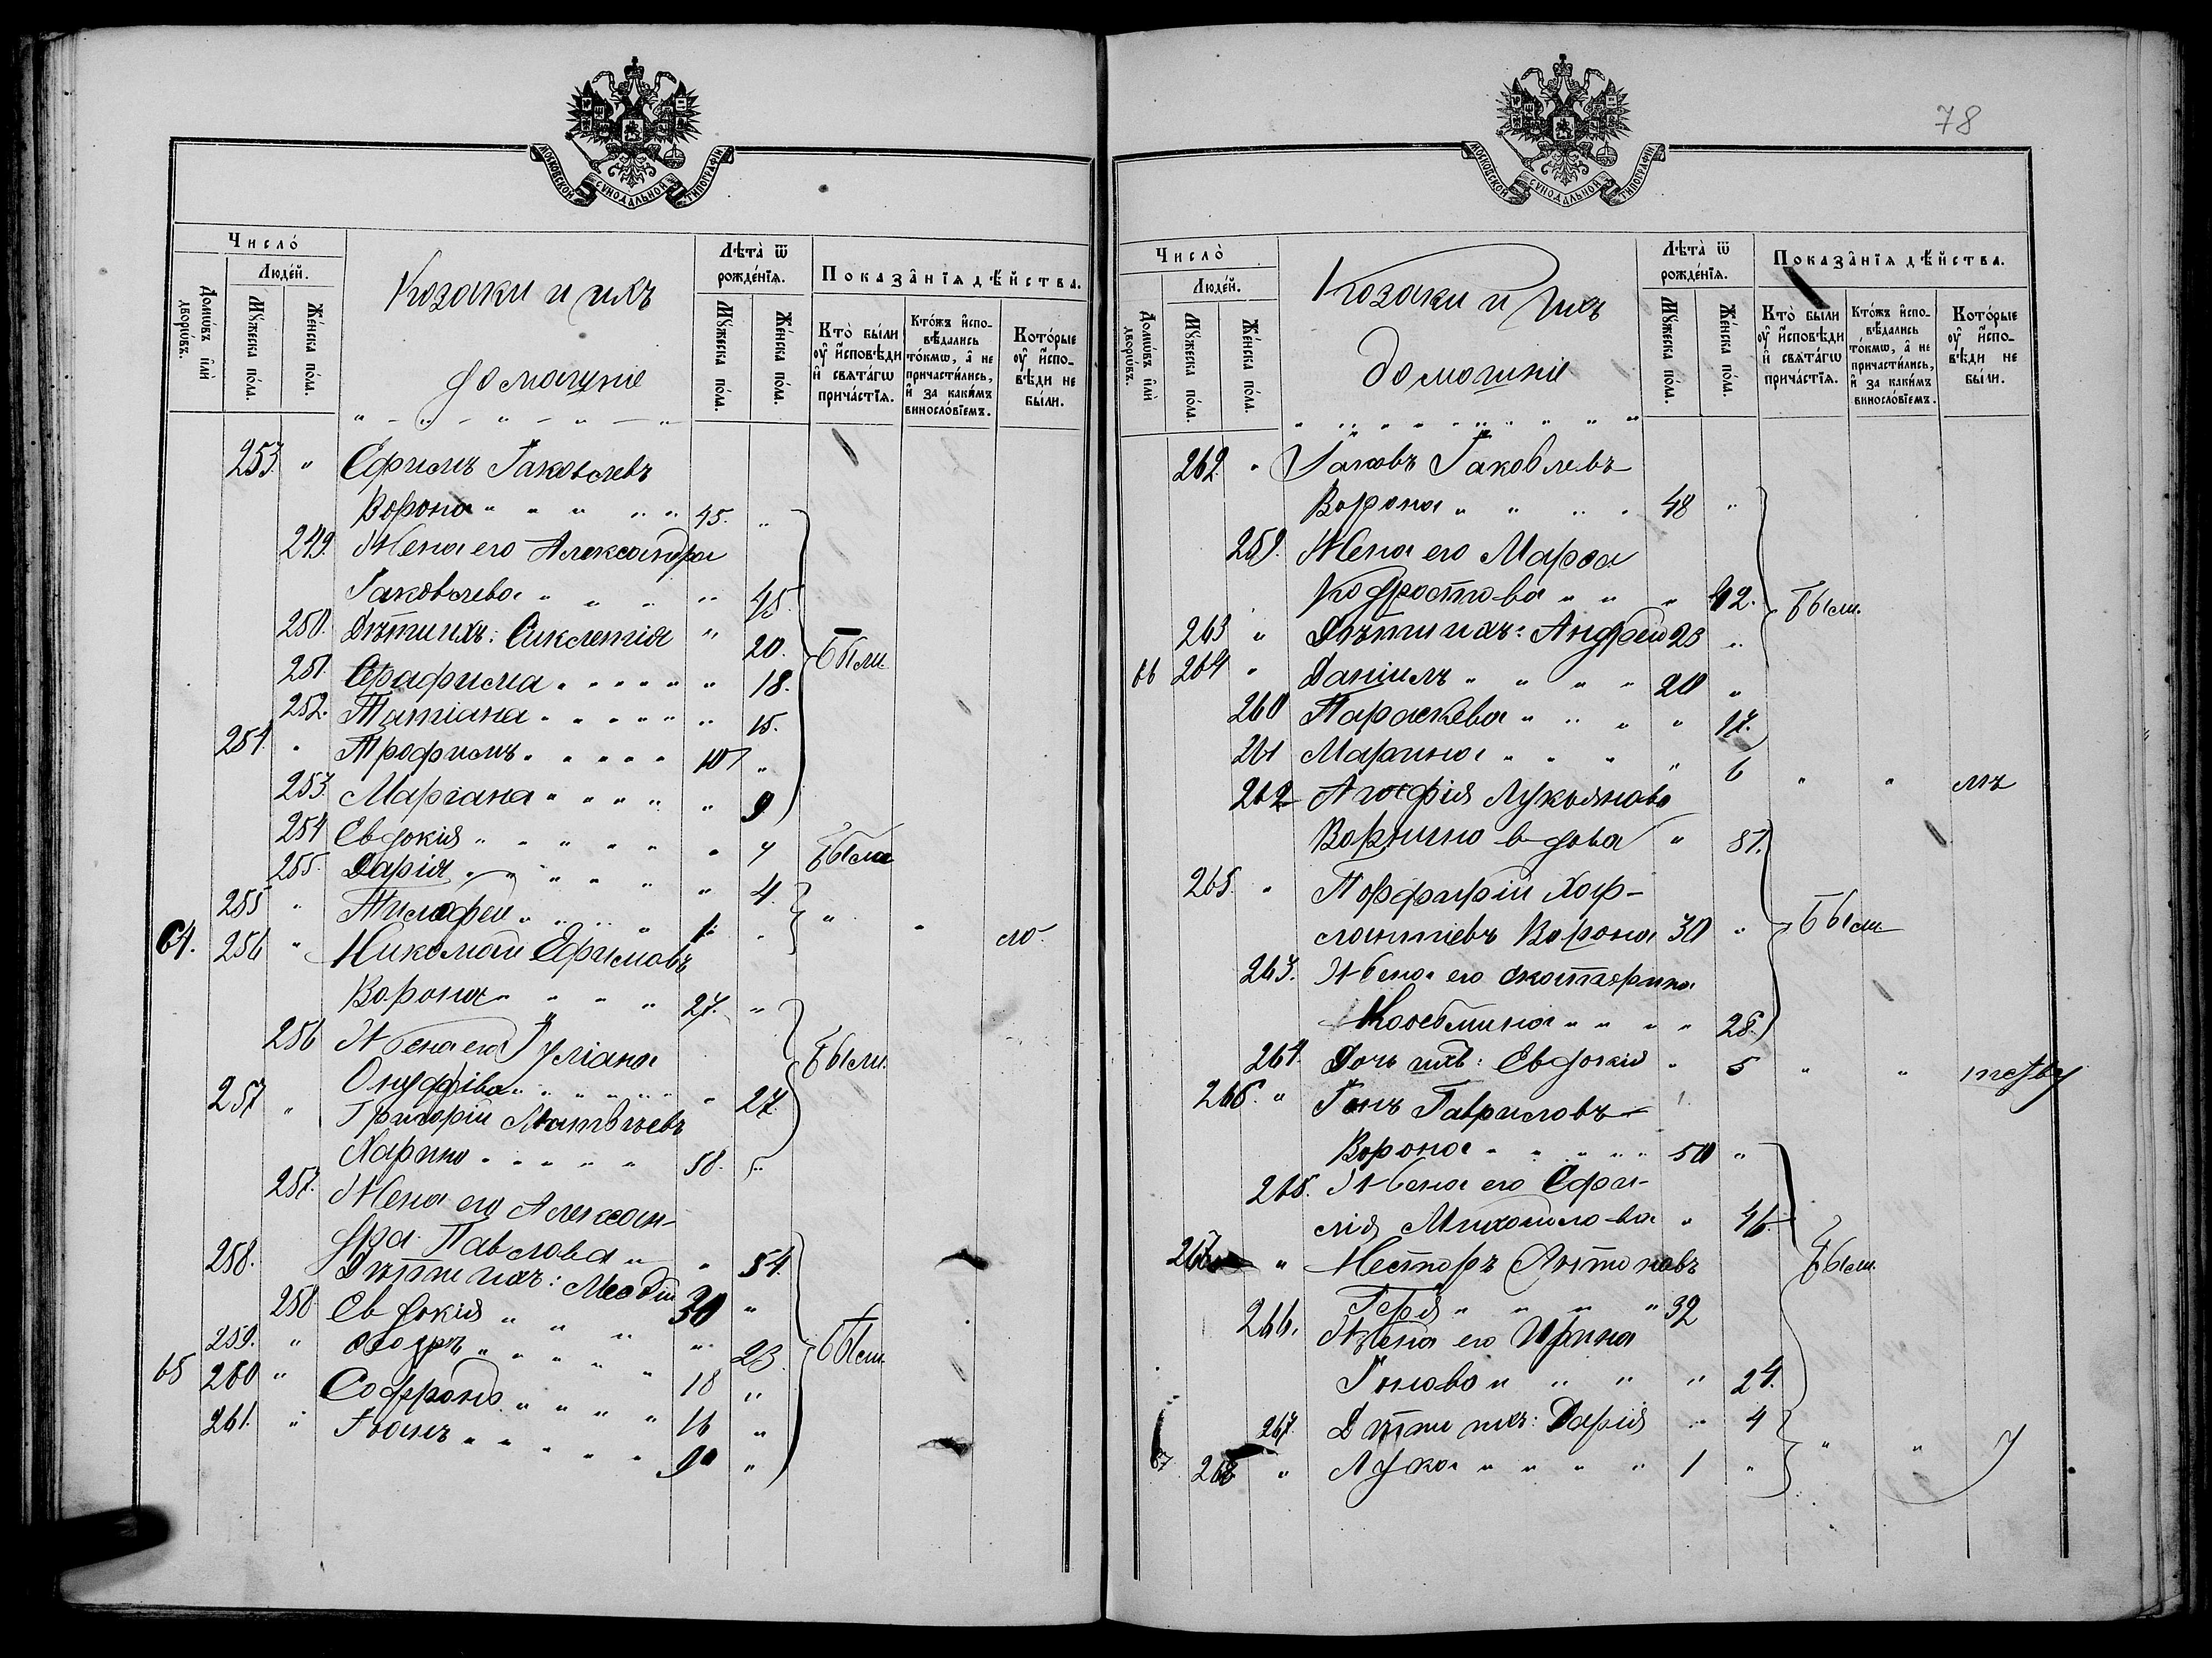 МОСКОВСКОЙ СѴНОДАЛЬНОЙ ТИПОГРАФІИ
Число̀
Люде́й.
Домѡ́въ и҆лѝ дворѡ́въ.
Мꙋ́жеска по́ла.
Же́нска по́ла.
Козаки и ихъ
домашніе
Лѣ́та ѿ рожде́нїѧ.
Мꙋ́жеска по́ла.
Же́нска по́ла.
Показа̂нїѧ дѣ́йства.
Кто̀ бы́ли оу҆ и҆спо́вѣди и҆ свѧта́гѡ прича́стїѧ.
Кто́жъ и҆сповѣ́дались то́кмѡ, а҆ не причасти́лись, и҆ за каки́мъ виносло́вїемъ.
Кото́рые оу҆ и҆спо́вѣди не бы́ли.
253 " Ефимъ Іаковлевъ
Ворона " " " " 45. "
249. Жена его Александра
Іаковлева " " " 45.
250. Дѣти ихъ: Синклетія " 20. Были
251. Серафима " " " " 18.
252. Татіана " " " " 15.
254. " Трофимъ " " " " 10 "
253. Маріана " " " " 9
254 Евдокія " " " " 7 Были
255. Дарія " " " " 4.
255 " Тимофей " " " 1. " " " ло
64. 256 " Николай Ефимовъ
Ворона " " " " 27. "
256 Жена его Іуліана Были.
Онуфріева " " " " 27.
257 " Григорій Матвѣевъ
Харино " " " " 58. "
257. Жена его Алексан-
дра Павлова " " 54.
258. Дѣти ихъ: Меѳодій 30 "
258 Евдокія " " " " 23. Были
259. " Ѳеодоръ " " " " 18 "
65 260 " Софроній " " " " 16 "
261. " Іоаннъ " " " " 9 "
78
МОСКОВСКОЙ СѴНОДАЛЬНОЙ ТИПОГРАФІИ
Число̀
Люде́й.
Домѡ́въ и҆лѝ дворѡ́въ.
Мꙋ́жеска по́ла.
Же́нска по́ла.
Козаки и ихъ
домашніе
Лѣ́та ѿ рожде́нїѧ.
Мꙋ́жеска по́ла.
Же́нска по́ла.
Показа̂нїѧ дѣ́йства.
Кто̀ бы́ли оу҆ и҆спо́вѣди и҆ свѧта́гѡ прича́стїѧ.
Кто́жъ и҆сповѣ́дались то́кмѡ, а҆ не причасти́лись, и҆ за каки́мъ виносло́вїемъ.
Кото́рые оу҆ и҆спо́вѣди не бы́ли.
262. " Іаковъ Іаковлевъ
Ворона " " " " 48 "
259. Жена его Марѳа
Кодратова " " " 42. Были.
263 " Дѣти ихъ: Андрей 23 "
66 264 " Даніилъ " " " " 20 "
260 Параскева " " " " 17.
261 Марина " " " " 6 " " лѣ
262 Агафія Лукьянова
Воронина вдова " 87.
265. " Порфирій Хар-
лампіевъ Ворона 30 " Были
263. Жена его Екатерина
" " " " 28.
264. Дочь ихъ: Евдокія " 5 " "
266. " Іоаннъ Гавриловъ
Ворона " " " " 50 "
265. Жена его Ефи-
мія Михайлова " 46.
267 " Несторъ Антоновъ Были
" " " " 32
266. Жена его Ирина
Іонова " " " " 24.
267. Дѣти ихъ: Дарія " 4
67 268 " Лука " " " " 1 " " "